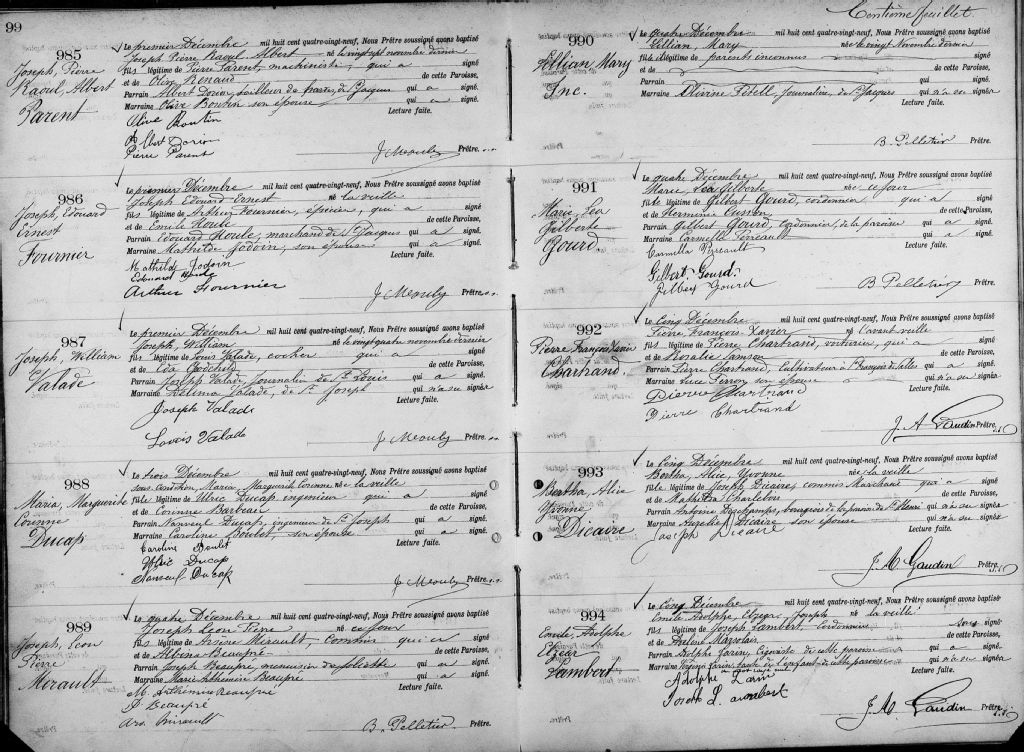 99
985
Joseph, Pierre
Raoul, Albert
Parent
Le premier Décembre mil huit cent quatre-vingt-neuf, Nous Prêtre soussigné avons baptisé
Joseph Pierre Raoul Albert né le vingt sept novembre dernier
fils légitime de Pierre Parent, machiniste, qui a signé
et de Oliv. Renaud de cette Paroisse.
Parrain Albert Dorion, tailleur de St Jacques qui a signé.
Marraine Olive Boutin son épouse qui a signé.
Lecture faite.
Olive Boutin
Albert Dorion
Pierre Parent
J Meouly Prêtre. s.s.
986
Joseph, Edouard
Ernest
Fournier
Le premier Décembre mil huit cent quatre-vingt-neuf, Nous Prêtre soussigné avons baptisé
Joseph Edouard Ernest né la veille
fils légitime de Arthur Fournier, épicier, qui a signé
et de Emile Houle de cette Paroisse,
Parrain Edouard Houle, marchand de St Jacques qui a signé.
Marraine Mathilde Jodoin, son épouse qui a signé.
Lecture faite.
Mathilde Jodoin
Edouard Houle
Arthur Fournier
J Meouly Prêtre. s.s.
987
Joseph, William
Valade
Le premier Décembre mil huit cent quatre-vingt-neuf, Nous Prêtre soussigné avons baptisé
Joseph, William né le vingt quatre novembre dernier
fils légitime de Louis Valade, cocher qui a signé
et de Eda Goodchild de cette Paroisse.
Parrain Joseph Valade, journalier de St Louis qui a signé.
Marraine Delima Valade, de St Joseph qui n'a su signer
Lecture faite.
Joseph Valade
Louis Valade
J Meouly Prêtre. s.s.
988
Maria, Marguerite
Corinne
Ducap
Le trois Décembre mil huit cent quatre-vingt-neuf, Nous Prêtre soussigné avons baptisé
sous condition, Maria Marguerite Corinne née la veille
fille légitime de Ulric Ducap ingenieur qui a signé
et de Corinne Barbeau de cette Paroisse.
Parrain Nanveul Ducap, ingenieur de St Joseph qui a signé.
Marraine Caroline Boulet, son épouse qui a signé.
Lecture faite.
Caroline Boulet
Ulric Ducap
Nanveul Ducap
J Meouly Prêtre. s.s.
989
Joseph, Leon
Pierre
Mirault
Le quatre Décembre mil huit cent quatre-vingt-neuf, Nous Prêtre soussigné avons baptisé
Joseph Leon Pierre né ce jour
fils légitime de Arsène Mirault commis qui a signé
et de Albina Beaupré de cette Paroisse.
Parrain Joseph Beaupré, menuisier de Joliette qui a signé.
Marraine Marie Arthémise Beaupré qui a signé.
Lecture faite.
M. Arthémise Beaupré
J. Beaupré
Ars. Mirault
B. Pelletier Prêtre.
Centième feuillet.
990
Lillian Mary
Inc.
Le quatre Décembre mil huit cent quatre-vingt-neuf, Nous Prêtre soussigné avons baptisé
Lillian, Mary née le vingt Novembre dernier
fille illégitime de parents inconnus signé
et de de cette Paroisse.
Parrain qui a signé.
Marraine Olivine Fetell, journalière, de St Jacques qui n'a su signer
Lecture faite.
B. Pelletier Prêtre.
991
Marie, Lea
Gilberte
Gourd
Le quatre Décembre mil huit cent quatre-vingt-neuf, Nous Prêtre soussigné avons baptisé
Marie, Lea Gilberte née ce jour
fille légitime de Gilbert Gourd, cordonnier qui a signé
et de Hermine de cette Paroisse,
Parrain Gilbert Gourd, cordonnier, de la paroisse qui a signé.
Marraine Carmella Perreault qui a signé.
Lecture faite.
Carmella Perreault
Gilbert Gourd.
Gilbert Gourd
B. Pelletier Prêtre.
992
Pierre François Xavier
Chartrand.
Le Cinq Décembre mil huit cent quatre-vingt-neuf, Nous Prêtre soussigné avons baptisé
Pierre François Xavier né l'avant veille
fils légitime de Pierre Chartrand, voiturier, qui a signé
et de Rosalie Samson de cette Paroisse,
Parrain Pierre Chartrand, Cultivateur à St François de Salles qui a signé.
Marraine Luce son épouse qui n'a su signer
Lecture faite.
Pierre Chartrand
Pierre Chartrand
J. A. Gaudin Prêtre.
993
Bertha, Alice
Yvonne
Dicaire
Le Cinq Décembre mil huit cent quatre-vingt-neuf, Nous Prêtre soussigné avons baptisé
Bertha, Alice, Yvonne née la veille
fille légitime de Joseph Dicaire, commis Marchand qui a signé
et de Mathilda Charlebois de cette Paroisse,
Parrain Antoine Deschamps, bourgeois de la paroisse de St Henri qui n'a su signer
Marraine Aurelie Dicaire son épouse qui n'a su signer
Lecture faite.
Joseph Dicair
J. A. Gaudin Prêtre.
994
Emile, Adolphe
Elzear
Lambert
Le Cinq Décembre mil huit cent quatre-vingt-neuf, Nous Prêtre soussigné avons baptisé
Emile Adolphe Elzear, Joseph né la veille
fils légitime de Joseph Lambert, Cordonnier signé
et de Marsolais de cette Paroisse.
Parrain Adolphe Jarin, de cette paroisse qui a signé.
Marraine Jarin, tante de l'enfant de cette paroisse qui n'a su signer
Lecture faite.
Adolphe Jarin
Joseph L. ambert
J. A. Gaudin Prêtre.